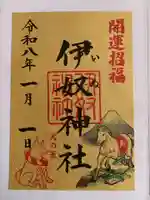 開運招福
伊奴神社
いぬ
令和八年
一月
一日